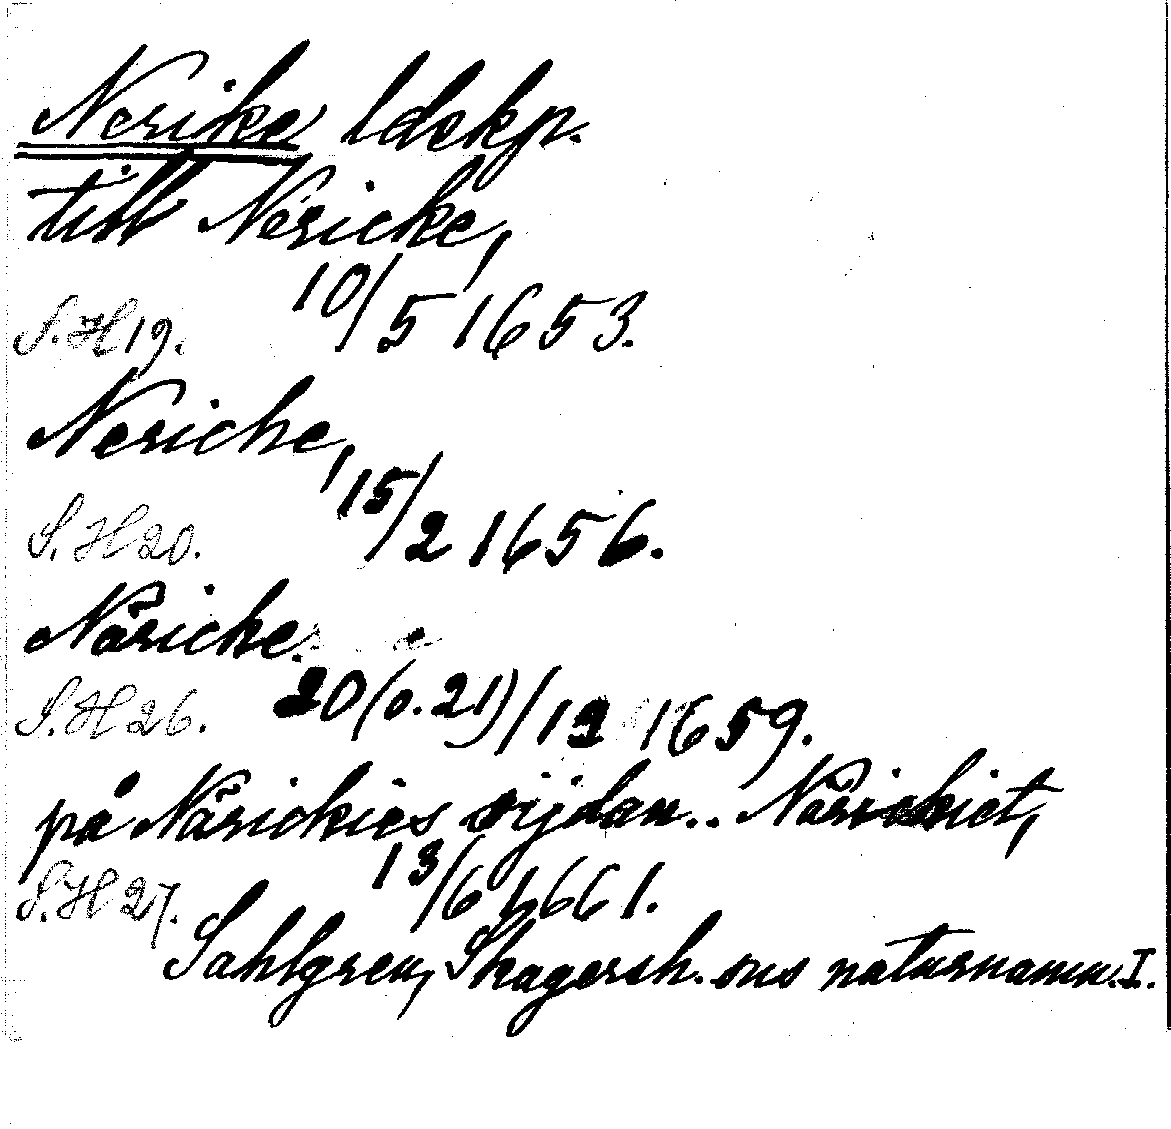 Nerike ldskp.
till Nericke,
S.H 19. 10/5 1653.
Neriche,
S.H 20. 15/2 1656.
Näricke.
S.H 26. 20(o. 21)/12 1659.
på Närickies sijdan.. Närickiet,
S.H 27. 13/6 1661.
Sahlgren, Skagersh. sns naturnamn. I.